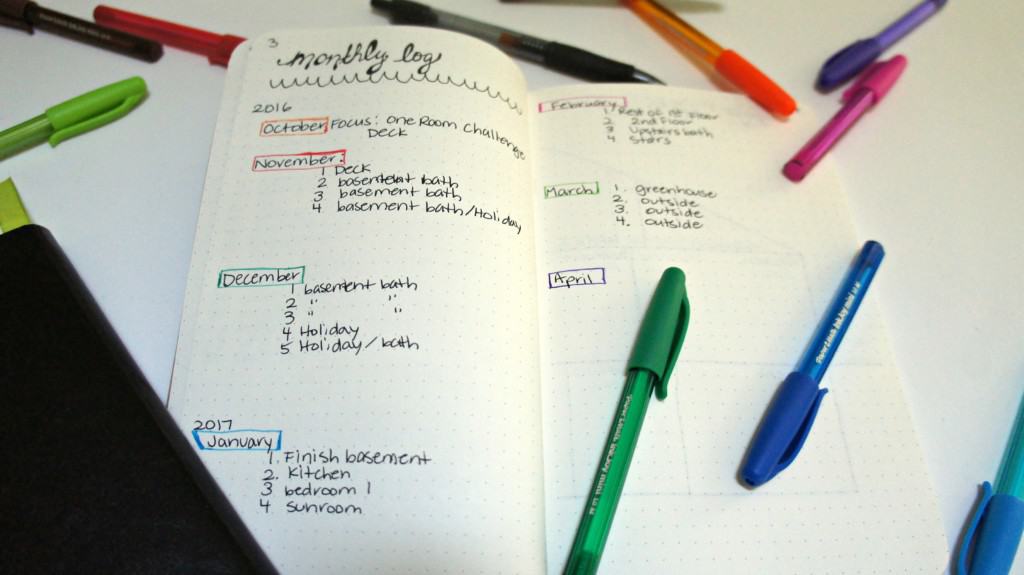 3
monthly log
2016
October Focus: One Room Challenge
Deck
November:
1 Deck
2 basement bath
3 basement bath
4 basement bath/Holiday
December
1 basement bath
2 " "
3 " "
4 Holiday
5 Holiday/bath
2017
January
1. Finish basement
2. Kitchen
3 bedroom 1
4 sunroom
February
1. Rest of 1st Floor
2 2nd Floor
3 Upstairs bath
4 Stairs
March 1. greenhouse
2. outside
3. outside
4. outside
April
Paper Mate InkJoy
Paper Mate InkJoy mini